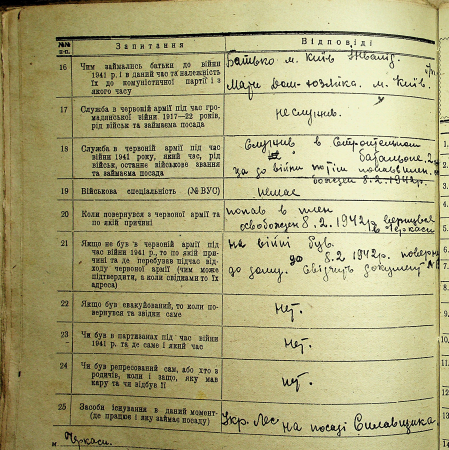 №№ п-п. Запитання Відповіді
16 Чим займались батьки до війни
1941 р. і в даний час та належність
їх до комуністичної партії і з
якого часу
Батько м. Київ
Мати дом-хозяйка. м. Київ.
17 Служба в червоній армії під час гро-
мадянської війни 1917—22 років,
рід військ та займаєма посада
не служив.
18 Служба в червоній армії під час
війни 1941 року, який час, рід
військ, останнє військове звання
та займаєма посада
Служив в Строительном
батальоне.
8.2.1942р.
19 Військова спеціальність (№ ВУС)
немає
20 Коли повернувся з червоної армії та
по якій причині
попав в плен
освобожден 8.2.1942р вернувся
в Черкаси
21 Якщо не був в червоній армії під
час війни 1941 р., то по якій при-
чині та де перебував підчас від-
ходу червоної армії (чим може
підтвердити, а коли свідками то їх
адреса)
на війні був.
до 8.2 1942р.
до дому. Свідчить документ
22 Якщо був евакуйований, то коли по-
вернувся та звідки саме
Нет.
23 Чи був в партизанах під час війни
1941 р. та де саме і який час
Нет.
24 Чи був репресований сам, або хто з
родичів, коли і защо, яку мав
кару та чи відбув її
нет.
25 Засоби існування в даний момент-
(де працює і яку займає посаду)
Укр. Лес на посаді
м Черкаси.